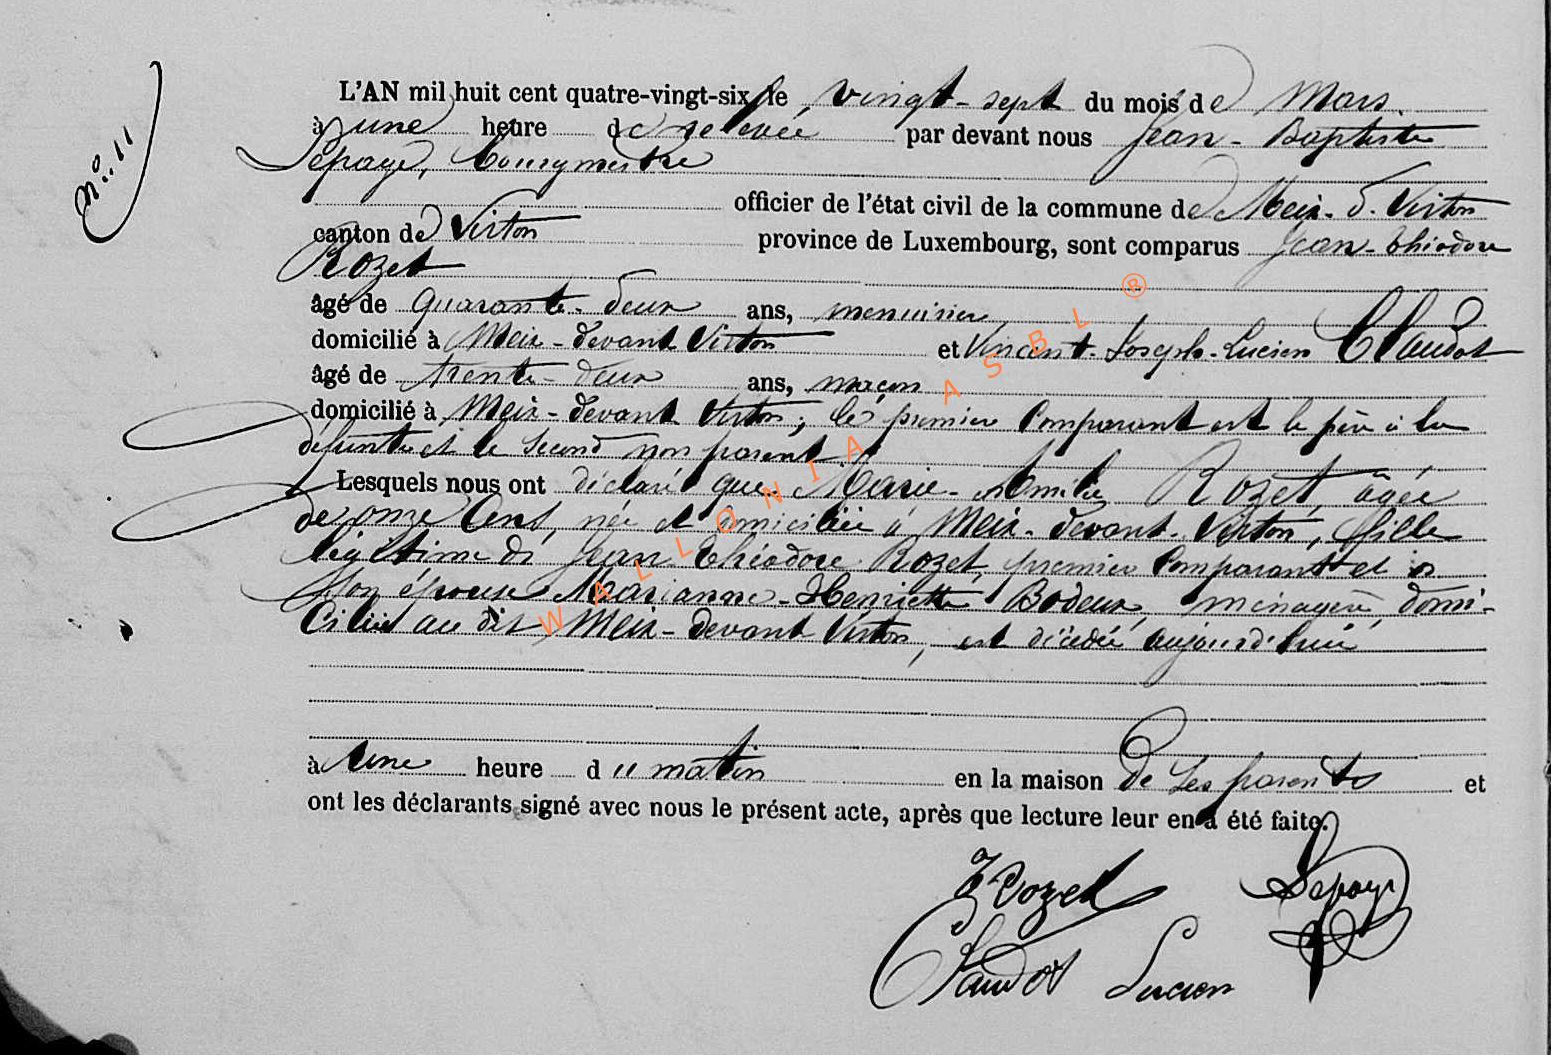 N° 11
L'AN mil huit cent quatre-vingt-six, le vingt-sept du mois de Mars
à une heure de relevée par devant nous Jean-Baptiste
Lepage, bourgmestre
officier de l'état civil de la commune de Meix-d.-Virton
canton de Virton province de Luxembourg, sont comparus Jean-Théodore
Rozet
âgé de quarante-deux ans, menuisier
domicilié à Meix-devant Virton et Vincent-Joseph-Lucien Claudot
âgé de trente-deux ans, maçon
domicilié à Meix-devant Virton; le premier Comparant est le père à la
défunte et le second non parent
Lesquels nous ont déclaré que Marie-Amélie Rozet, âgée
de onze ans, née et domiciliée à Meix-devant-Virton, fille
légitime de Jean Théodore Rozet, premier Comparant et de
son épouse Marianne-Henriette Bodeux, ménagère, domi-
ciliés au dit Meix-devant Virton, est décédée aujourd'hui
à une heure d u matin en la maison de ses parents et
ont les déclarants signé avec nous le présent acte, après que lecture leur en a été faite.
Rozet Lepage
Claudot Lucien
WALLONIA ASBL ®